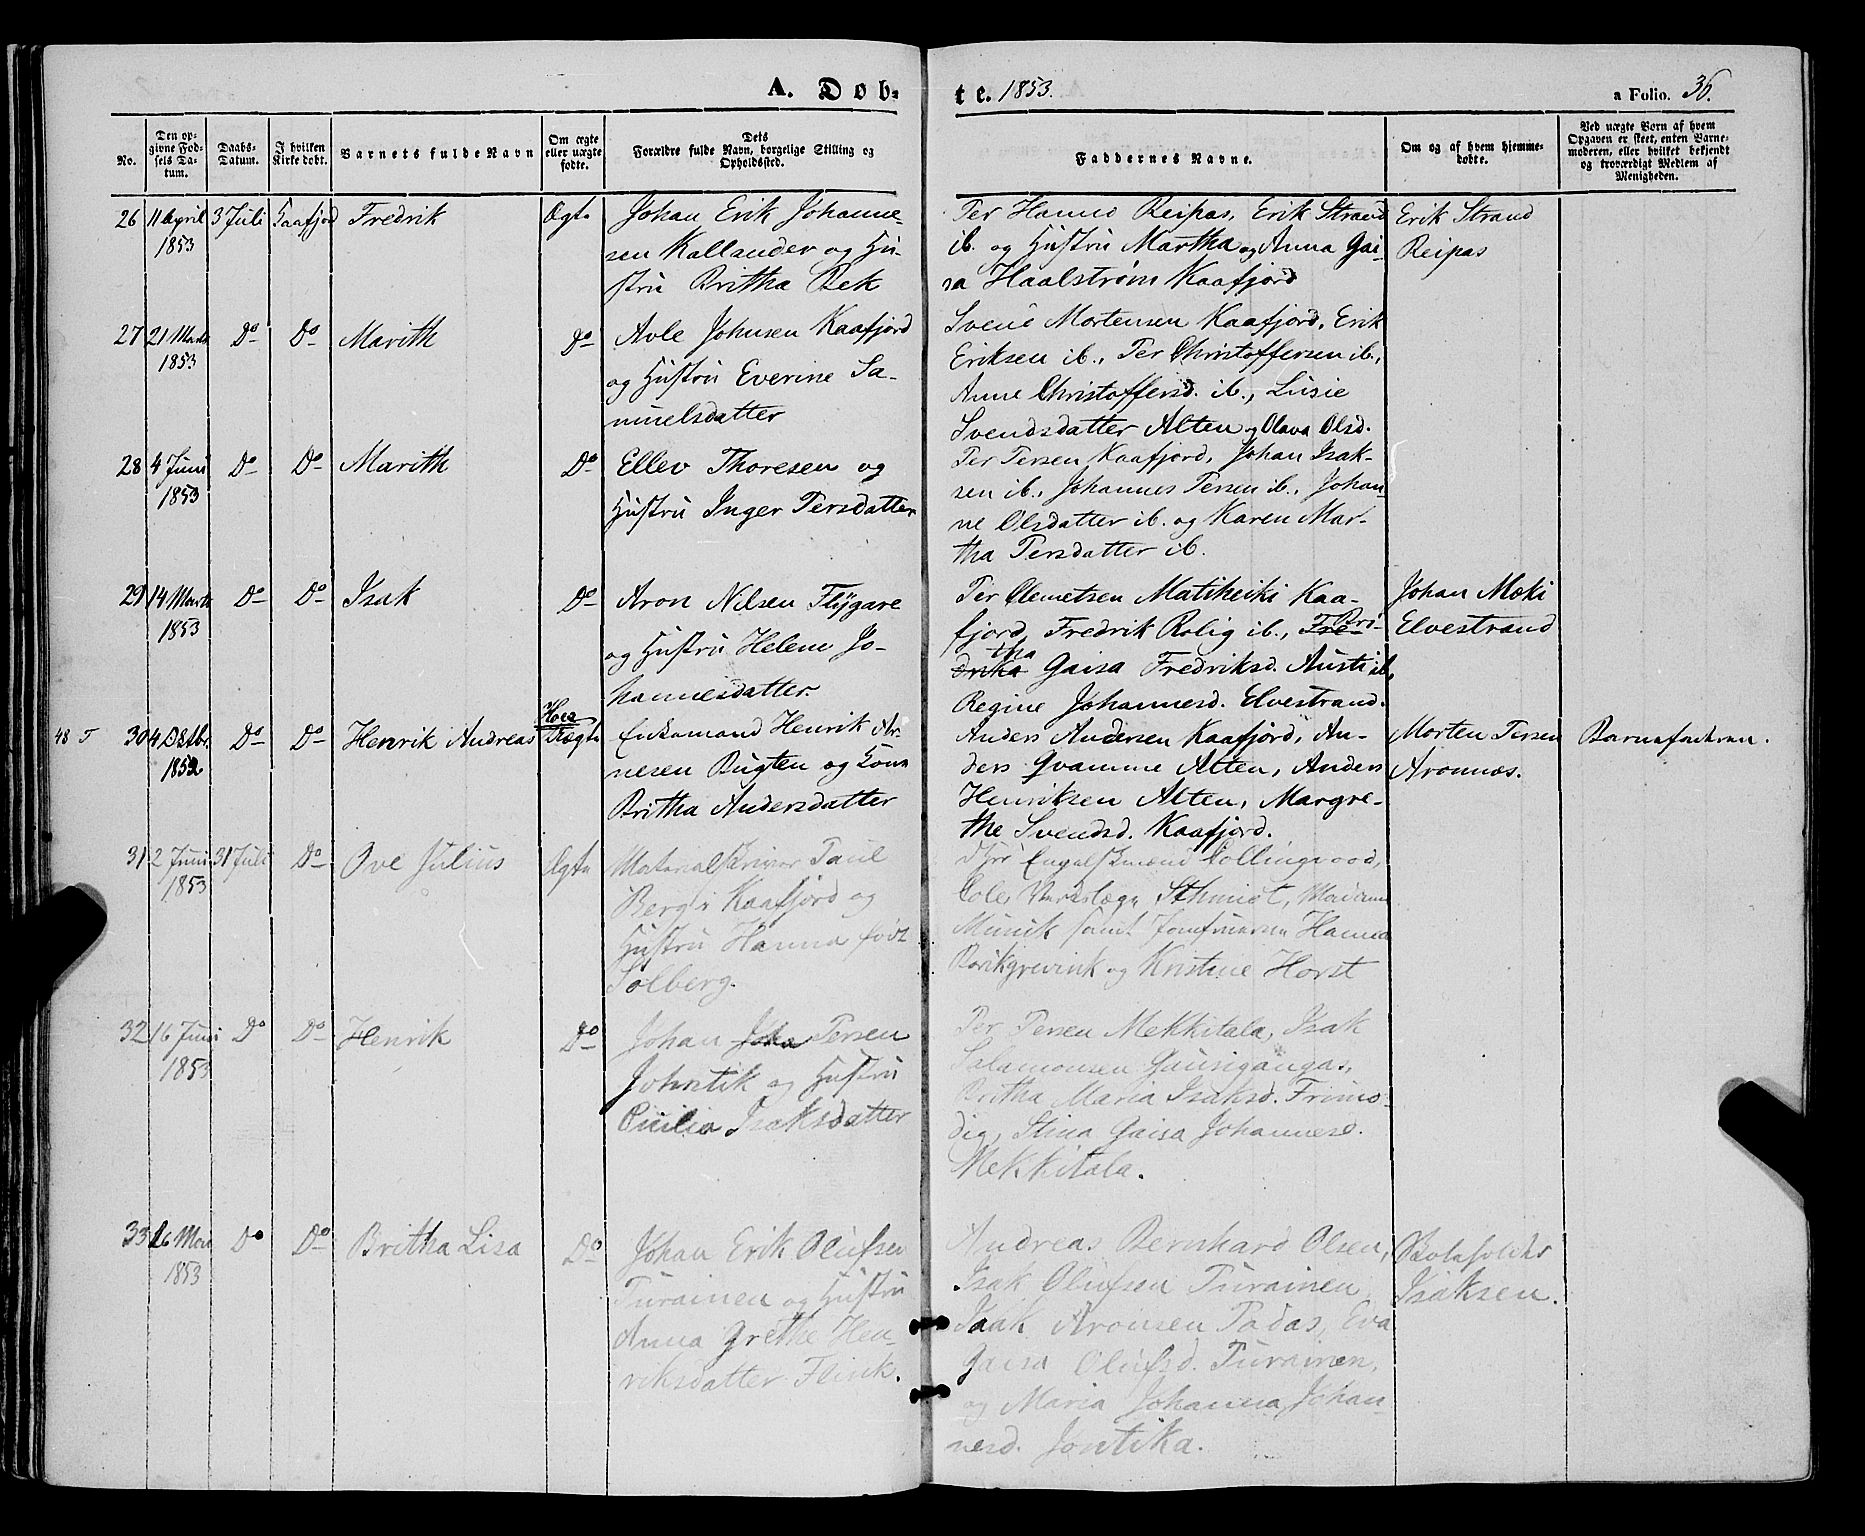 A. Døb-
te. 1853.
a Folio. 36.
No.
Den op-
givne Fød-
sels Da-
tum.
Daabs-
Datum.
I hvilken
Kirke døbt.
Barnets fulde Navn
Om ægte
eller uægte
fødte.
Dets
Forældre fulde Navn, borgelige Stilling og
Opholdssted.
Faddernes Navne.
Om og af hvem hjemme-
døbte.
Ved uægte Børn af hvem
Opgaven er skeet, enten Barne-
moderen, eller hvilket bekjendt
og troværdigt Medlem af
Menigheden.
26 11 April 3 Juli Kaafjord Fredrik Ægte
1853
Johan Erik Johanne-
sen Kallander og Hu-
stru Britha Bek
Per Hanno Reipas, Erik Strand
ib. og Hustru Martha og Anna Gai-
sa Haalstrøm Kaafjord
Erik Strand
Reipas
27 21 Marts Do Do Marith Do
1853
Avle Johnsen Kaafjord
og Hustru Everine Sa-
muelsdatter
Svend Mortensen Kaafjord, Erik
Eriksen ib., Per Christoffersen ib.,
Anne Christoffersd. ib., Lusie
Svendsdatter Alten og Olava Olsd.
28 4 Juni Do Do Marith Do
1853
Ellev Thoresen og
Hustru Inger Persdatter
Per Persen Kaafjord, Johan Isak-
sen ib., Johannes Persen ib., Johan-
ne Olsdatter ib. og Karen Mar-
tha Persdatter ib.
29 14 Marts Do Do Isak Do
1853
Aron Nilsen Flygare
og Hustru Helene Jo-
hannesdatter
Per Clemetsen Matiheiki Kaa-
fjord, Fredrik Rolig ib., Fre- Bri-
drika tha Gaisa Fredriksd. Austi ib,
Regine Johannesd. Elvestrand.
Johan Mæki
Elvestrand
48 5 30 4 Octbr. Do Do Henrik Andreas Uægte
1852
Enkemand Henrik Ar-
nesen Bugten og Kone
Britha Andersdatter
Anders Andersen Kaafjord, An-
ders Qvamme Alten, Anders
Henriksen Alten, Margre-
the Svendsd. Kaafjord.
Morten Persen
Aronnæs.
Barnefaderen.
31 2 Juni 31 Juli Do Ove Julius Ægte
1853
Materialskriver Paul
Berg i Kaafjord og
Hustru Hanna født
Solberg.
Collingwood,
Cole, Schmidt, Madame
Munik samt Jomfruerne Hanna
og Kristine Horst
32 16 Juni Do Do Henrik Do
1853
Johan Joha Persen
Johntik og Hustru
Cicilia Isaksdatter
Per Persen Mekkitala, Isak
Salamonsen
Britha Maria Isaksd. Frimo-
dig, Stina Gaisa Johannesd.
Mekkitala.
33 26 Mai Do Do Britha Lisa Do
1853
Johan Erik Olufsen
Turainen og Hustru
Anna Grethe Hen-
riksdatter Flink.
Andreas Bernhard Olsen,
Isak Olufsen Turainen
Isak Aronsen Padas, Eva
Gaisa Olufsd. Turainen,
og Maria Johanna Johan-
nesd. Jontika.
Isaksen.